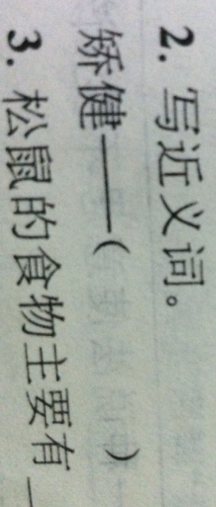 2. 写近义词。
矫健——(          )
3. 松鼠的食物主要有_